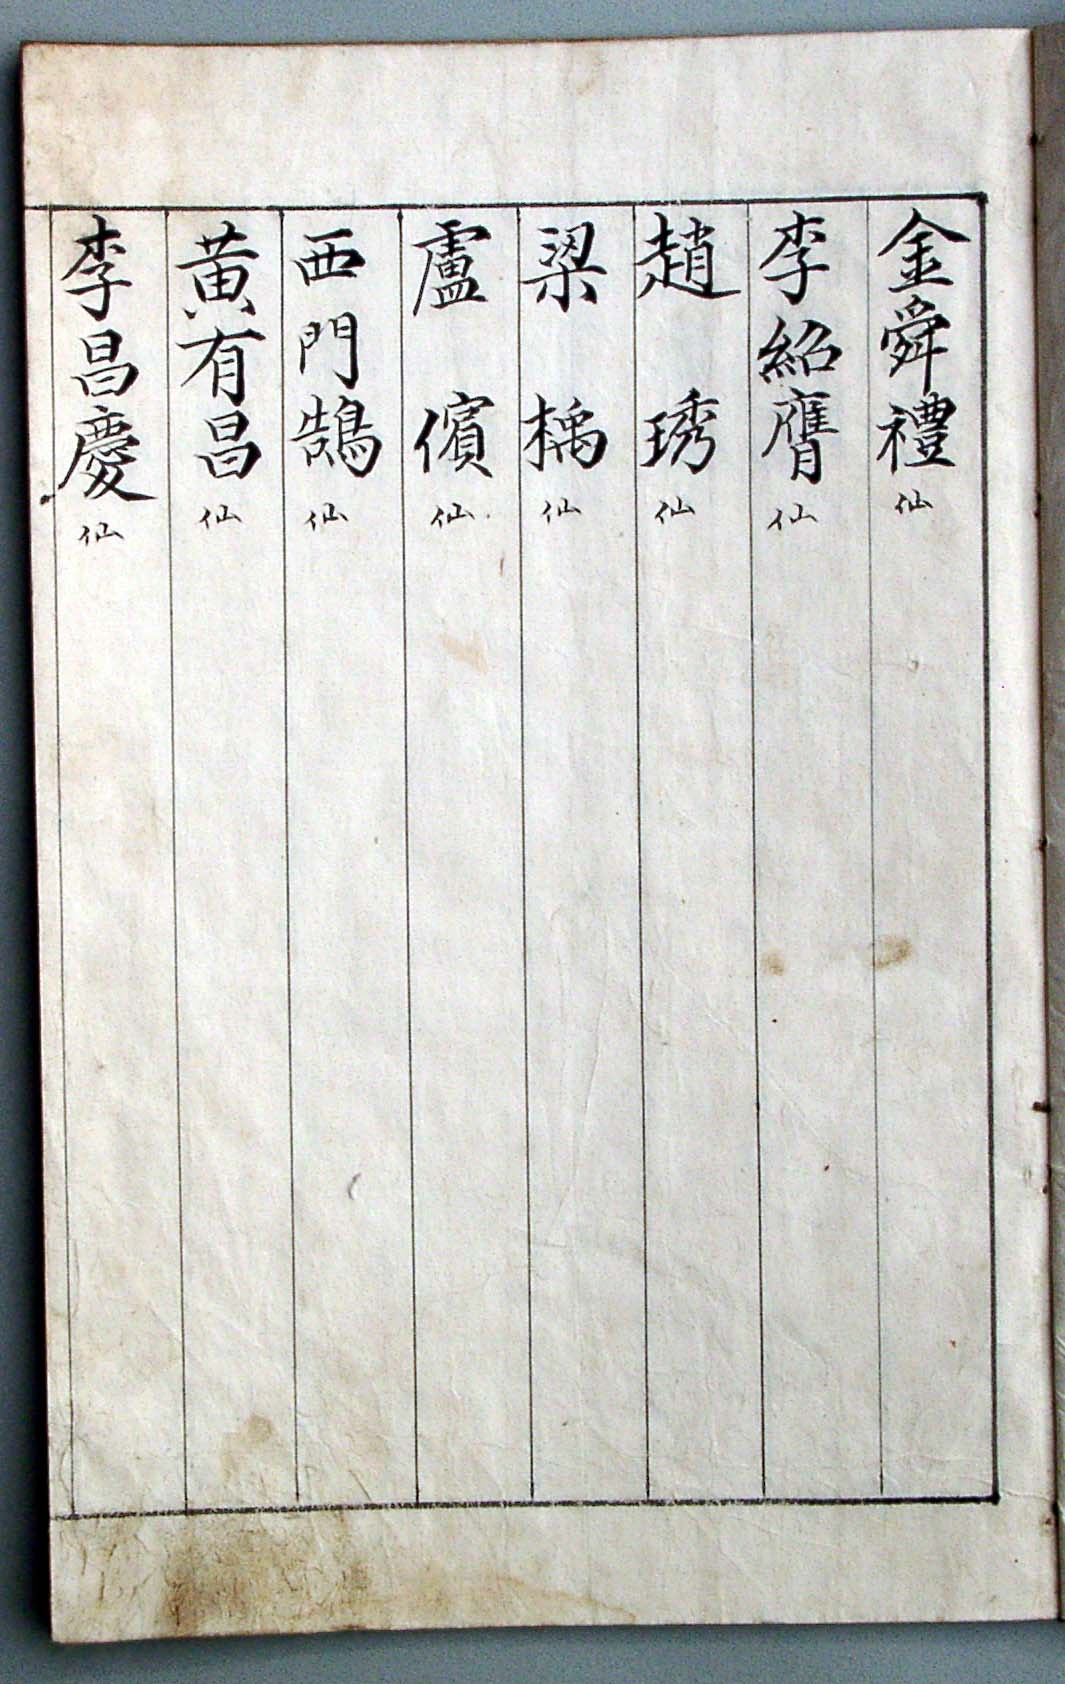 金舜禮仙
李紹膺仙
趙琇仙
梁楀仙
盧儐仙
西門鵠仙
黃有昌仙
李昌慶仙